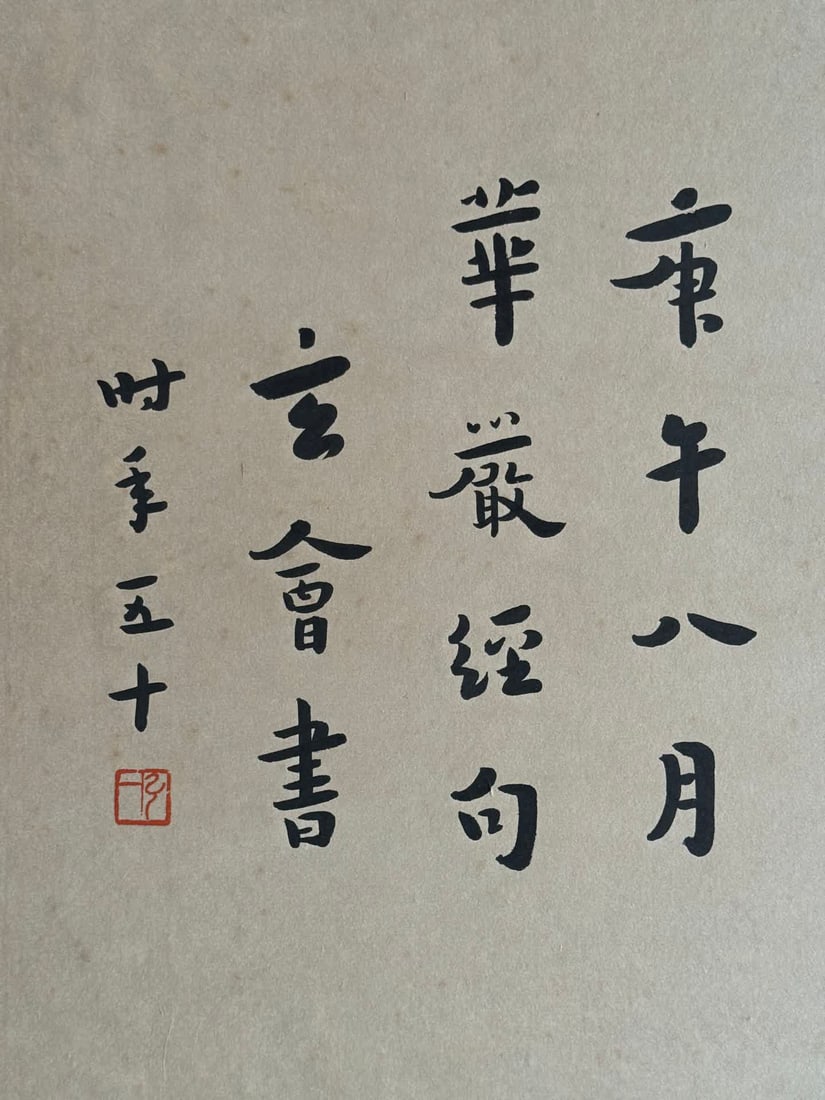 庚午八月
華嚴經句
玄會書
时年五十